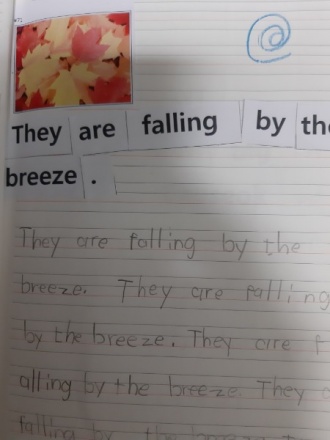 They are falling by the
breeze.
They are falling by the
breeze. They are falling
by the breeze. They are f
alling by the breeze. They
falling by the breeze